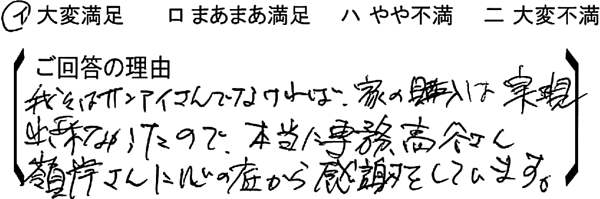 イ 大変満足 ロ まあまあ満足 ハ やや不満 ニ 大変不満
ご回答の理由
我々はサンアイさんでなければ、家の購入は実現
出来なかったので、本当に専務、高谷さん
嶺岸さんに心の底から感謝をしています。